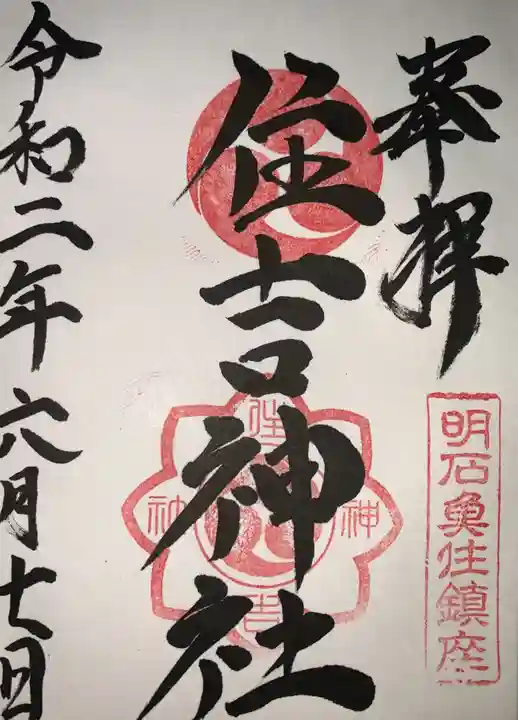 奉拝
明石魚住鎮座
住吉神社
住
神 社
吉
令和二年六月七日